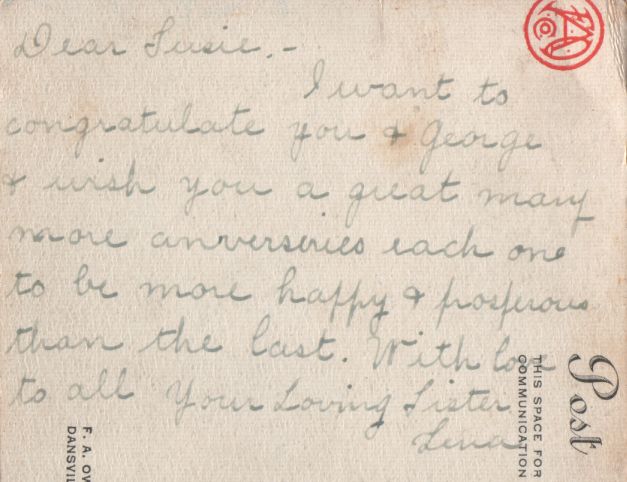 Dear Susie,-
I want to
congratulate you & George
& wish you a great many
more anverseries each one
to be more happy & prosperous
than the last. With love
to all Your Loving Sister
Lena
Post
THIS SPACE FOR
COMMUNICATION
F. A. OW
DANSVIL